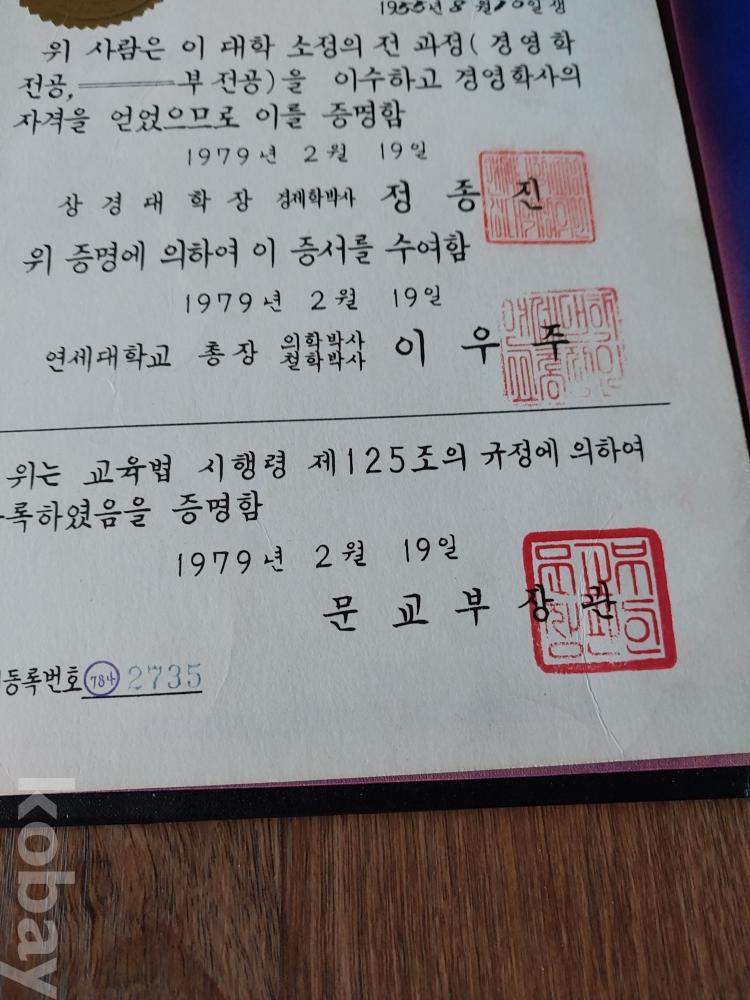 1955년 8월 10일생
위 사람은 이 대학 소정의 전 과정( 경영학
전공, 부 전공)을 이수하고 경영학사의
자격을 얻었으므로 이를 증명함
1979년 2월 19일
상경대학장 경제학박사 정종진
위 증명에 의하여 이 증서를 수여함
1979년 2월 19일
연세대학교 총장 의학박사 철학박사 이우주
위는 교육법 시행령 제125조의 규정에 의하여
록하였음을 증명함
1979년 2월 19일
문교부장관
등록번호 784 2735
kobay